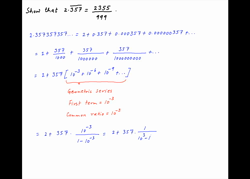 Show that 2.\overline{357} = 2355/999
2.357357357... = 2 + 0.357 + 0.000357 + 0.000000357 + ...
= 2 + 357/1000 + 357/1000000 + 357/1000000000 + ...
= 2 + 357 [10⁻³ + 10⁻⁶ + 10⁻⁹ + ...]
Geometric series
First term = 10⁻³
Common ratio = 10⁻³
= 2 + 357 · 10⁻³/(1 − 10⁻³) = 2 + 357 · 1/(10³ − 1)